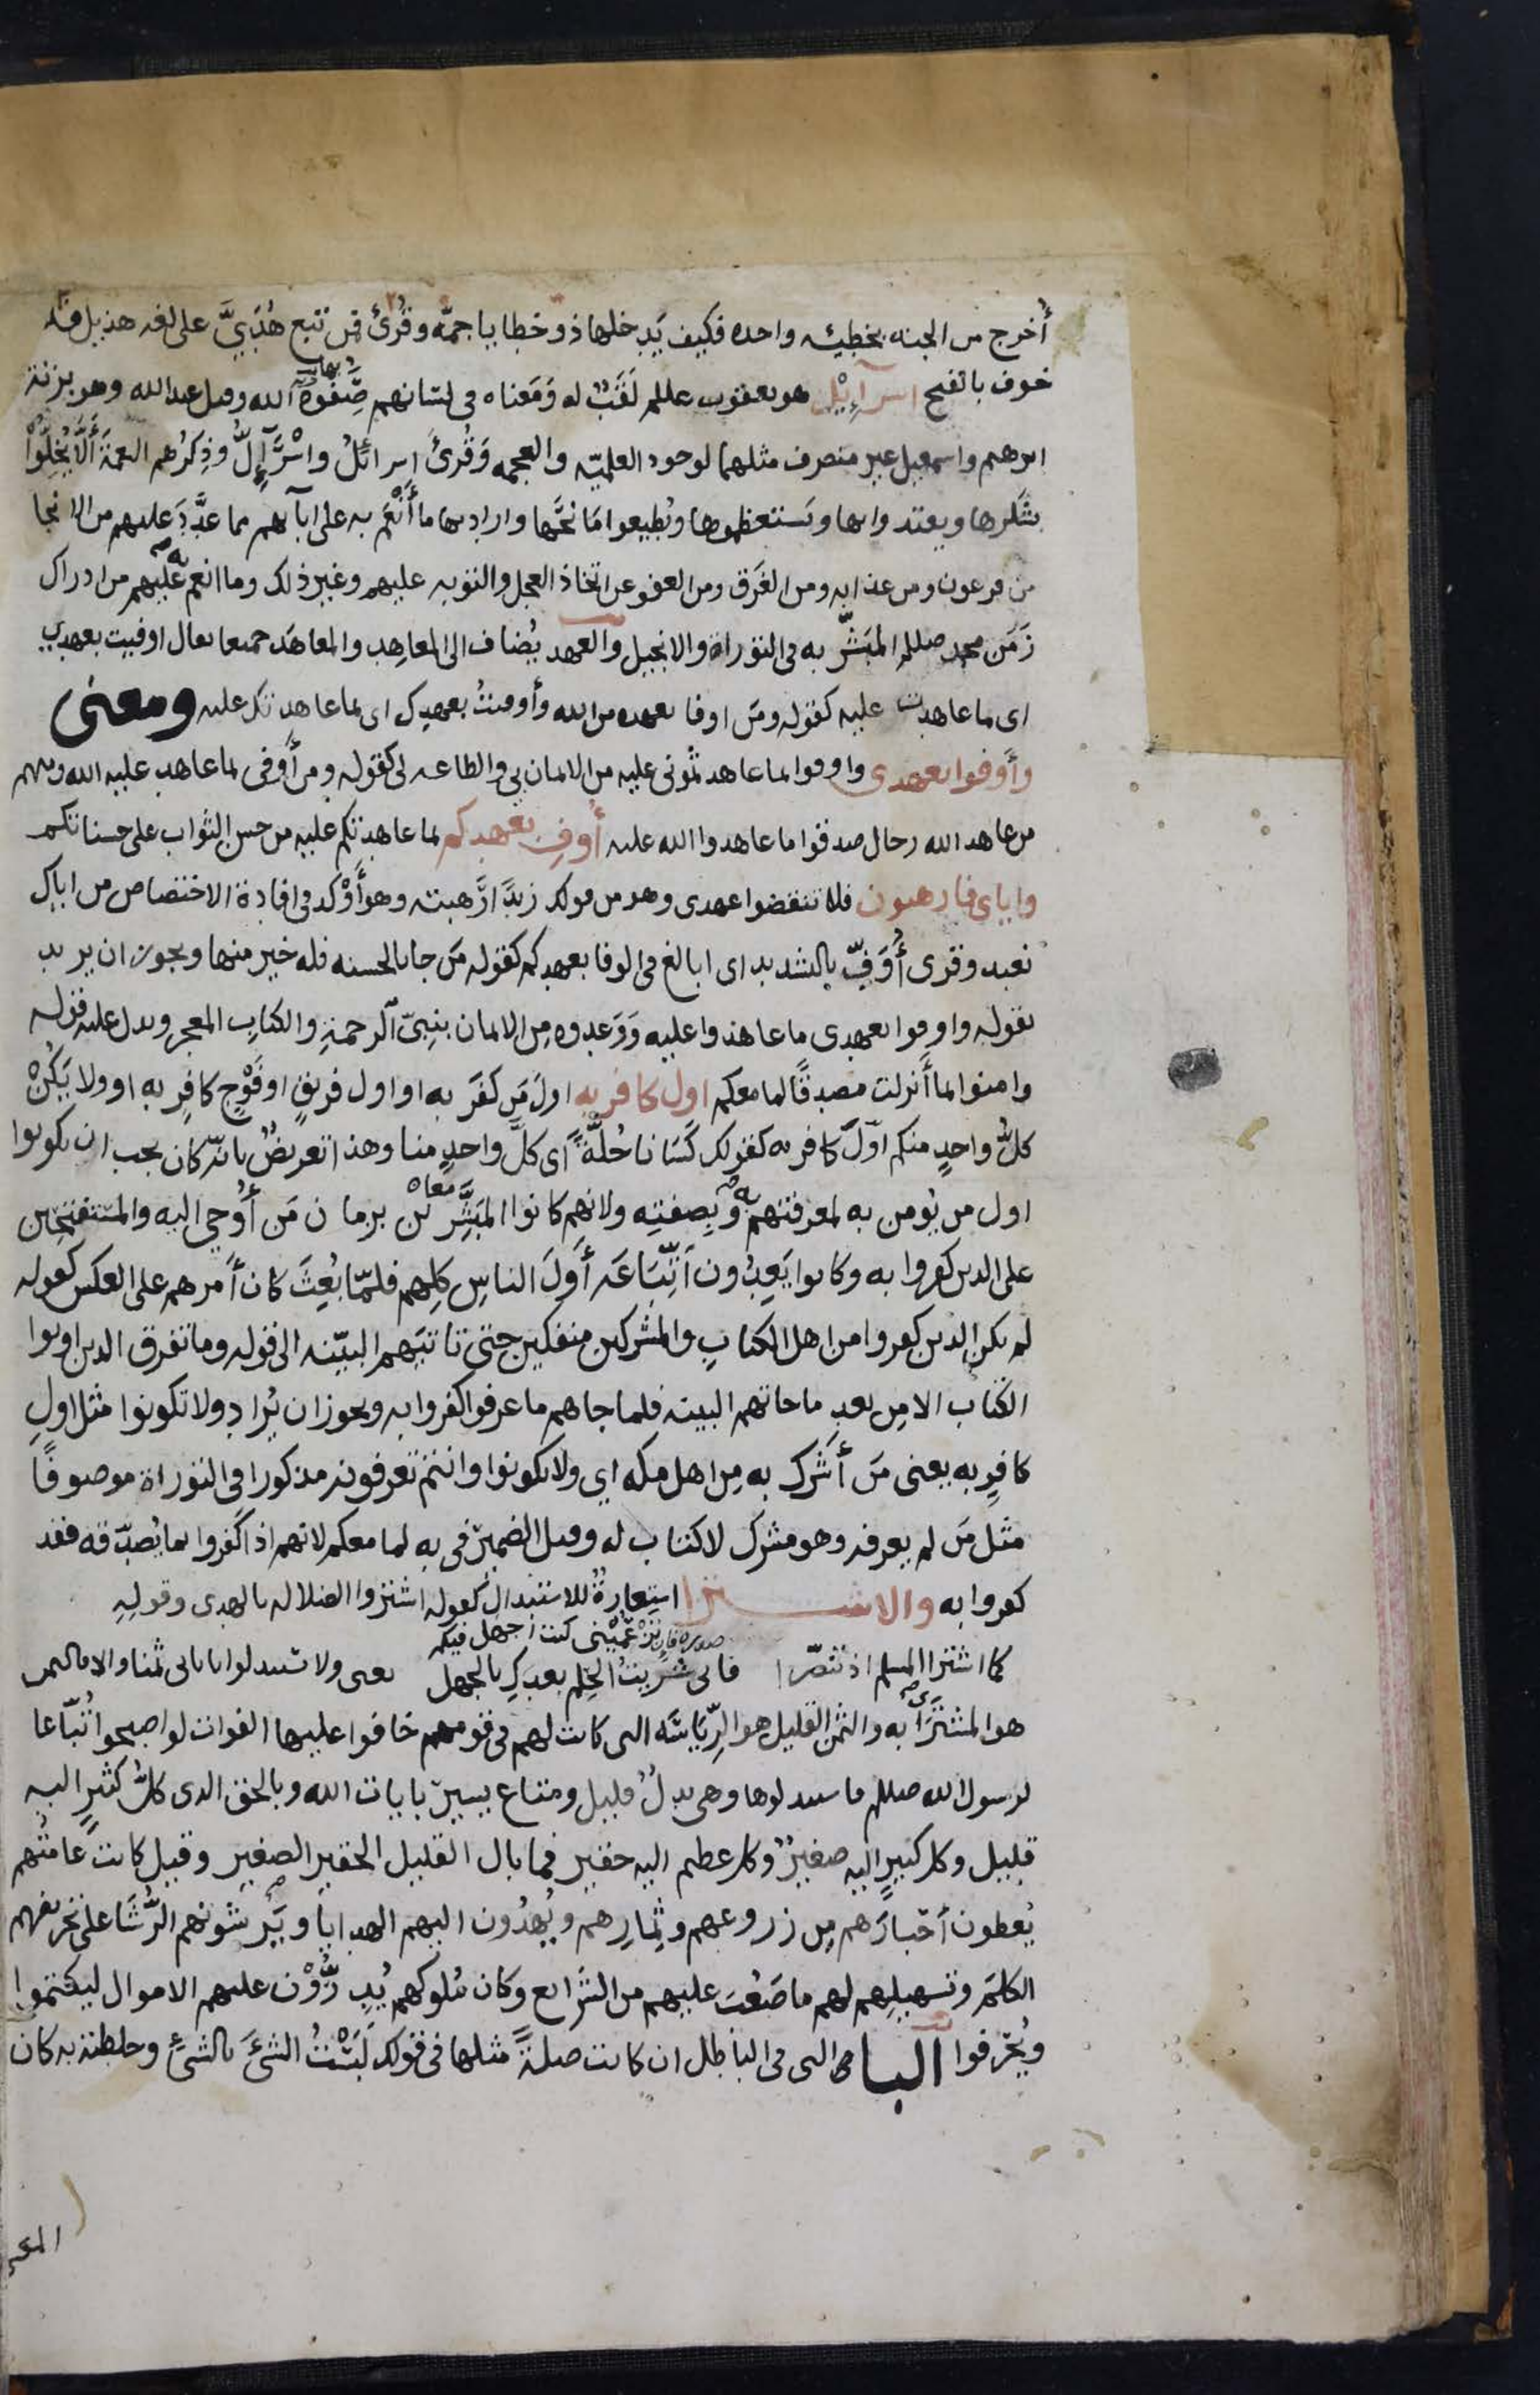 أُخرج من الجنه بخطيئه واحده فكيف يَدخلها ذو خطايا جمّه وقُرئ فمن تبع هُدَيَّ على لغه هذيل فلا
خوف بالفتح اسرآئِيْل هو يعقوب علىلم لَقَبٌ له وَمَعناه فى لسانهم صَِفُوةُ الله وقيل عبد الله وهو بزنة
ابرهيم واسمعيل غير منصرف مثلهما لوجود العلميّه والعجمه وَقُرئ اسرائلُ واسْرَآلُّ وذِكرُهم النعمةَ أَلَّا يُخِلُّوْا
بشكرها ويعتدوا بها ويَستعظموها ويُطيعوا مَانحَها واراد بها ما أَنْعَم به على ابآئهم مما عدَّدَ عليهم من الانجا
من فرعون ومن عذابه ومن الغَرَق ومن العفو عن اتخاذ العجل والتوبه عليهم وغير ذلك وما انعم به عليهم من ادراك
زَمَن محمد صللم المُبَشَّر به فى التوراة والانجيل والعهد يُضاف الى المعاهِد والمعاهَد جميعا يقال اوفيت بعهدي
اى ما عاهدت عليه كقوله ومَن اوفا بعهده من الله وأوفيتُ بعهدِك اى بما عاهدتك عليه ومعنى
وأوفوا بعهدى واوفوا بما عاهدتمُونى عليه من الايمان بى والطاعه لى كقوله ومن أوفى بما عاهد عليه الله ومنهم
من عاهد الله رجال صدقوا ما عاهدوا الله عليه أُوفِ بعهدكم بما عاهدتكم عليه من حسن الثواب على حسناتكم
واياى فارهبون فلا تنقضوا عهدى وهو من قولك زيدًا رهبته وهو أوْكد فى افادة الاختصاص من اياك
نعبد وقرى أُوَفِّ بالتشديد اى ابالغ فى الوفا بعهدكم كقوله مَن جا بالحسنه فله خير منها ويجوز ان يريد
بقوله واوفوا بعهدى ما عاهدوا عليه وَوَعدوه مِن الايمان بنبِىّ الرحمةِ والكتابِ المعجز ويدل عليه قوله
وامنوا بما أَنزلت مصدقًا لما معكم اول كافر به اولَ مَن كفَر به او اول فريقٍ او فَوْجٍ كافرٍ به او ولا يَكُنْ
كلُّ واحدٍ منكم اوّلَ كافر به كقولك كَسَانا حُلّةً اى كلَّ واحدٍ منا وهذا تعريضٌ بانّه كان يجب ان يكونوا
اول من يُؤمن به لمعرفتهم به وبِصفتِه ولانهم كانوا المبَشِّرِيْن بزمان مَن أُوْحِي اليه والمستفتحين
على الذين كفروا به وكانوا يَعِدُون اتّبَاعَه أوَلَ الناسِ كلِهم فلمّا بُعِثَ كان أَمرهم على العكس كقوله
لم يكن الذين كفروا من اهل الكتابِ والمشركين منفكين حتى تاتيَهم البيّنه الى قوله وما تفرق الذين اوتوا
الكتاب الا مِن بعدِ ما جاتهم البينه فلما جاهم ما عرفوا كفروا به ويجوز ان يُراد ولا تكونوا مثل اولِ
كافرٍ به يعنى مَن أشْرك به مِن اهل مكه اي ولا تكونوا وانتم تعرفونه مذكورا فى التوراة موصوفًا
مثل مَن لم يعرفه وهو مشرك لا كتاب له وقيل الضمير فى به لما معكم لانهم اذا كفروا بما يُصدّقه فقد
كفروا به والاشترا استِعارةٌ للاستبدال كقوله اشتروا الضلاله بالهدى وقولِهِ
صدره فان تَزْعُمِيْنى كنت اجهل فيكم
كما اشترا المسلم اذ تنصّرا فانى شَريتُ الحِلم بعدَكِ بالجهل يعنى ولا تستبدلوا باياتى ثمنا والا فالثمن
هو المشترَا به والثمن القليل هو الرِّيَاسَه التى كانت لهم فى قومهم خافوا عليها الفوات لو اصبحوا تُبّاعا
لرسول الله صللم فاستبدلوها وهى بدلٌ قليل ومتاع يسيرٌ بايات الله وبالحق الذى كلُّ كثيرٍ اليه
قليل وكل كبيرٍ اليه صغيرٌ وكل عظيم اليه حقير فما بال القليل الحقير الصغير وقيل كانت عامّتُهم
يُعطون أَحْبارَهم مِن زروعهم وثِمارِهم ويُهدُون اليهم الهدايا ويَرْشونهم الرُّشَا على تحريفهم
الكلمَ وتسهيلِهم لهم ما صَعُبَ عليهم من الشرَايع وكان مُلوكهم يُدِرُّوْن عليهم الاموال ليكتموا
ويُحَرّفوا البا التى فى الباطل ان كانت صلةً مثلها فى قولك لَبَسْتُ الشئَ بالشئِ وخلطته به كان